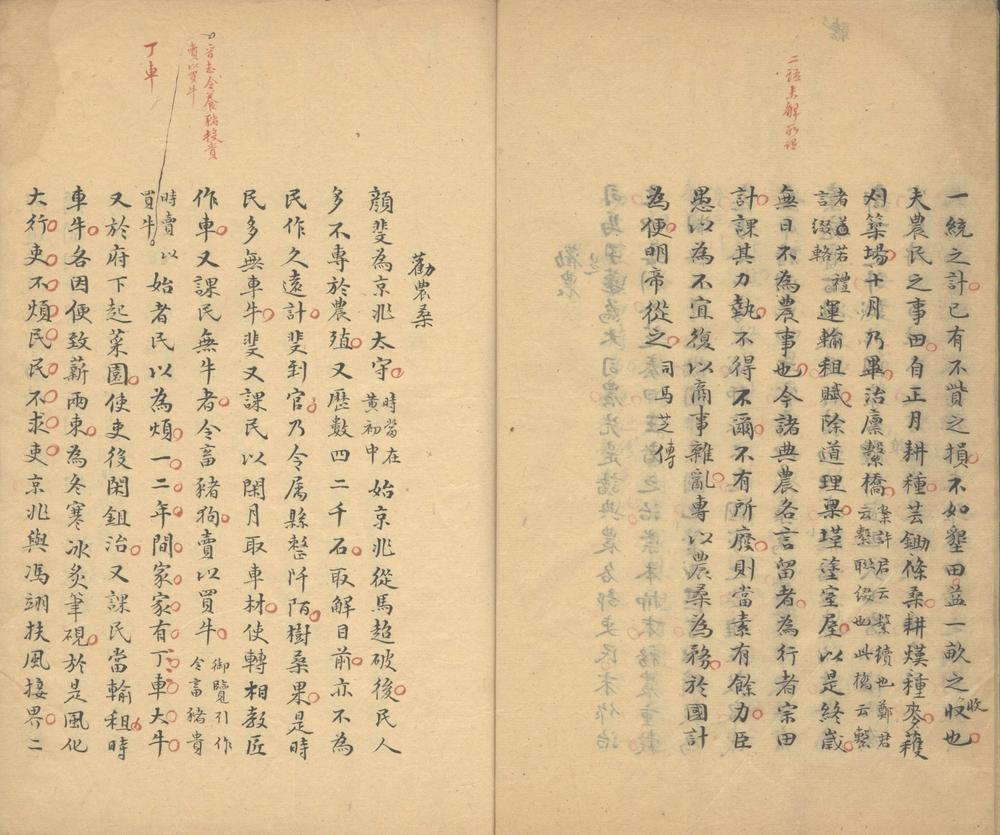 二語未解所謂
一統之計已有不貲之損不如墾田益一畝之收也
收
夫農民之事田自正月耕種芸鋤條桑耕熯種麥穫
刈築場十月乃畢治廩繫橋案許君云繫續也鄭君云繫聯綴也此橋云繫
者道若禮言綴輅運輸租賦除道理梁墐塗室屋以是終歲
無日不為農事也今諸典農各言留者為行者宗田
計課其力勢不得不爾不有所廢則當素有餘力臣
愚以為不宜復以商事雜亂專以農桑為務於國計
為便明帝從之司馬芝傳
勸農桑
顏斐為京兆太守時當在黃初中始京兆從馬超破後民人
多不專於農殖又歷數四二千石取解目前亦不為
民作久遠計斐到官乃令屬縣整阡陌樹桑果是時
民多無車牛斐又課民以閑月取車材使轉相教匠
晉志令養豬投貴賣以買牛
作車又課民無牛者令畜豬狗賣以買牛御覽引作令畜豬貴
丁車
時賣買牛以始者民以為煩一二年間家家有丁車大牛
又於府下起菜園使吏後閑鉏治又課民當輸租時
車牛各因便致薪兩束為冬寒冰炙筆硯於是風化
大行吏不煩民民不求吏京兆與馮翊扶風接界二